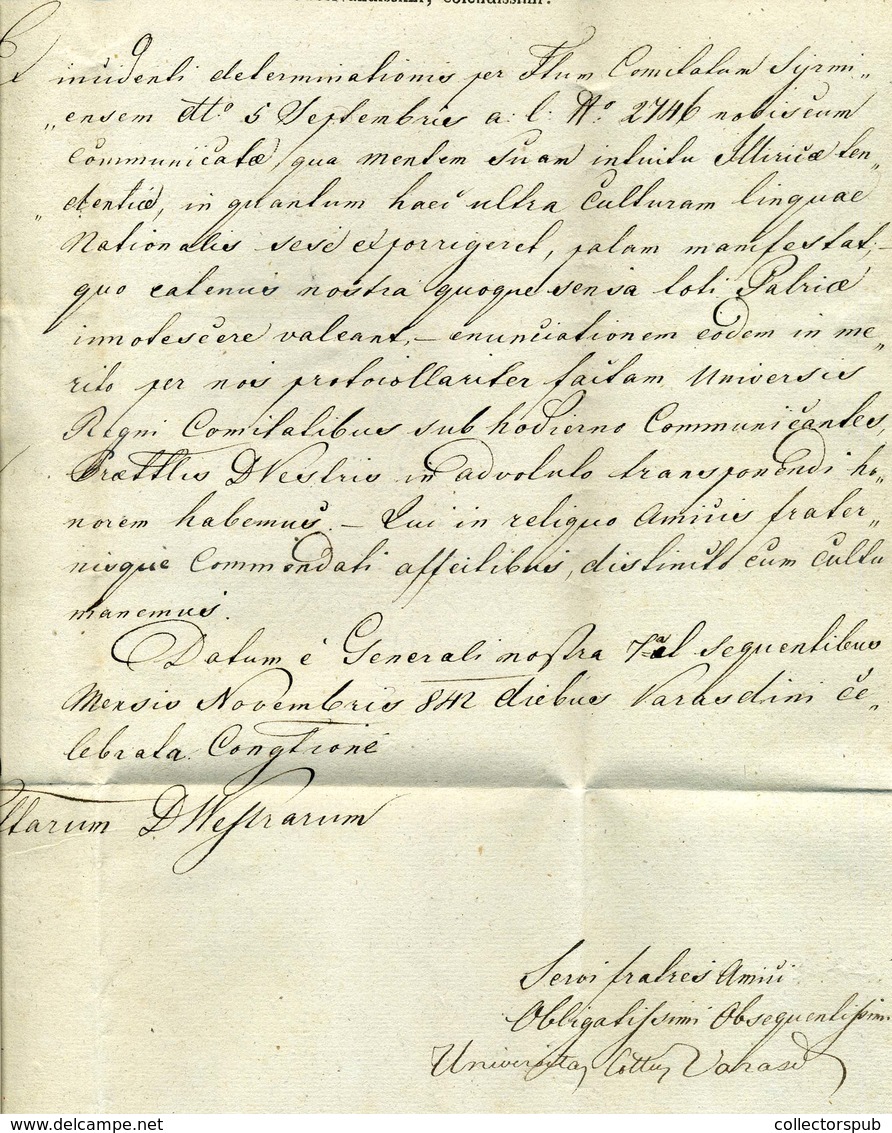 colendissimi.
Ex
incidenti determinationis per I. Comitatum Syrmi„
„ensem dtto 5 Septembris a: c: No. 2746 nobiscum
Communicatæ, qua mentem suam intuitu Illiricæ ten„
„dentiæ, in quantum haec ultra Culturam linguae
Nationalis sese exporrigeret, palam manifestat,–
quo eatenus nostra quoque sensa toti Patriæ
innotescere valeant,– enunciationem eodem in me„
rito per nos protocollariter factam Universis
Regni Comitatibus sub hodierno Communicantes,
Prættlis DVestris in advoluto transponendi ho„
norem habemus. – Qui in reliquo Amicis frater„
nisque Commendati affectibus, distincto cum cultu
manemus.
Datum e Generali nostra 7a et sequentibus
Mensis Novembris 842 diebus Varasdini ce„
lebrata Congtione
ttarum DVestrarum
Servi fratres Amici
Obligatissimi Obsequentissimi
Universitas Cottus Varasd
delcampe.net
collectorspub